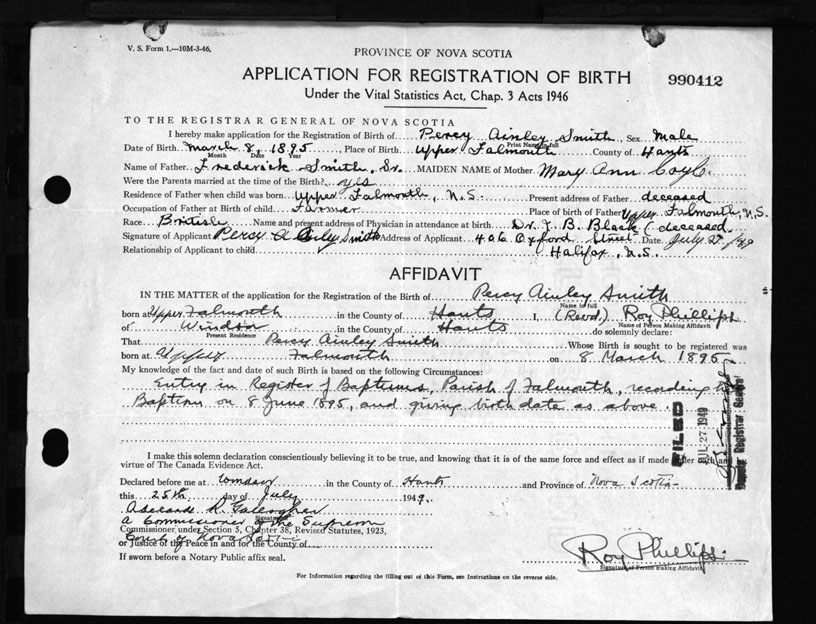 V. S. Form 1.—10M-3-46.
PROVINCE OF NOVA SCOTIA
APPLICATION FOR REGISTRATION OF BIRTH
990412
Under the Vital Statistics Act, Chap. 3 Acts 1946
TO THE REGISTRAR GENERAL OF NOVA SCOTIA
I hereby make application for the Registration of Birth of Percy Ainley Smith, Sex Male
Print Name in full
Date of Birth March 8, 1895, Place of Birth Upper Falmouth County of Hants
Month Date Year
Name of Father Frederick Smith, Sr. MAIDEN NAME of Mother Mary Ann
Were the Parents married at the time of the Birth? yes
Residence of Father when child was born Upper Falmouth, N.S. Present address of Father deceased
Occupation of Father at Birth of child Farmer Place of birth of Father Upper Falmouth, N.S.
Race British Name and present address of Physician in attendance at birth Dr. J. B. Black (deceased
Signature of Applicant Percy A Smith Address of Applicant 406 Oxford Street Date July
Relationship of Applicant to child Halifax, N.S.
AFFIDAVIT
IN THE MATTER of the application for the Registration of the Birth of Percy Ainley Smith
Name in full
born at Upper Falmouth in the County of Hants I, (Revd) Roy Phillips
Name of Person Making Affidavit
of Windsor in the County of Hants do solemnly declare:
Present Residence
That Percy Ainley Smith Whose Birth is sought to be registered was
born at Upper Falmouth on 8 March 1895
My knowledge of the fact and date of such Birth is based on the following Circumstances:
Entry in Register of Baptisms, Parish of Falmouth, recording
Baptism on 8 June 1895, and giving birth date as above.
FILED
JUL 27 1949
Deputy Registrar General
I make this solemn declaration conscientiously believing it to be true, and knowing that it is of the same force and effect as if made under oath and
virtue of The Canada Evidence Act.
Declared before me at Windsor in the County of Hants and Province of Nova Scotia
this 25th day of July 1949.
R. Gallagher
Signature
A Commissioner of the Supreme
Commissioner under Section 5, Chapter 38, Revised Statutes, 1923,
Court of Nova Scotia
or Justice of the Peace in and for the County of
If sworn before a Notary Public affix seal.
Roy Phillips
Signature of Person Making Affidavit
For Information regarding the filling out of this Form, see Instructions on the reverse side.